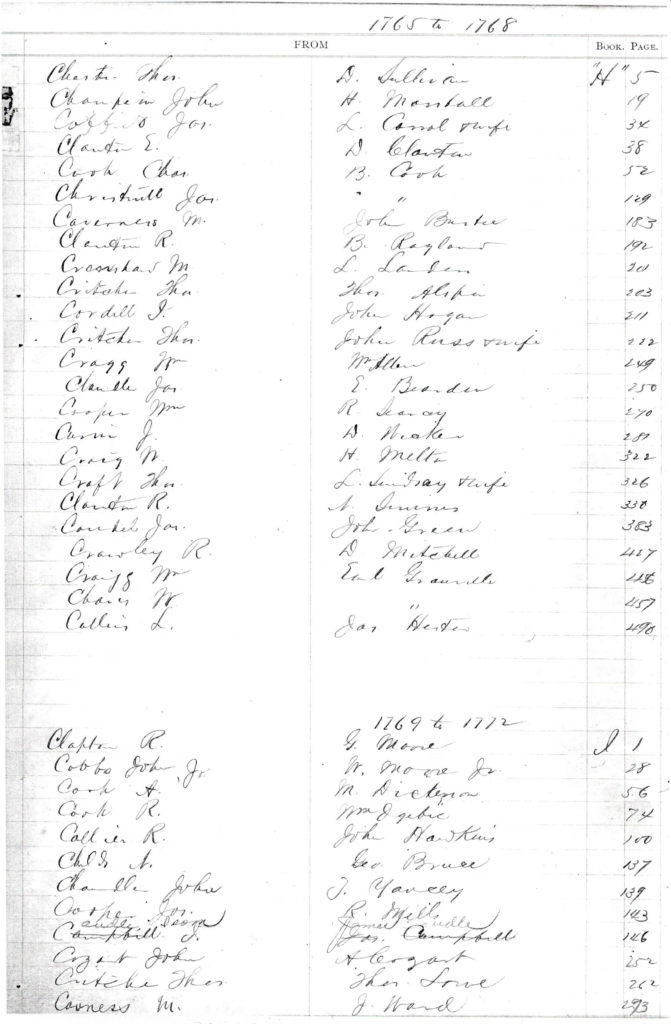 1765 to 1768
FROM BOOK. PAGE.
Thos. D. Sullivan "H" 5
Champion John H. Marshall 19
Jas. L. Carrol & wife 34
Clanton E. D. Clanton 38
Cook Chas. B. Cook 52
Jas. " " 129
Caverness M. John 183
Clanton R. B. Ragland 192
Crenshaw M L. Landers 201
Critcher Thos. Thos. Alspin 203
Cordell I. John Hogan 211
Critcher Thos. John Russ & wife 222
Cragg Wm Wm Allen 249
Jas E. Bearden 250
Cooper Wm R. Searcy 270
J. D. Wicker 281
Craig W. H. Melton 322
Craft Thos. L. Lindsay & wife 326
Clanton R. N. 330
Jas. John Green 383
Crawley R. D Mitchell 427
Craigg Wm Earl Granville 446
W. " 457
Collins L. Jas Hester 490
1769 to 1772
Clapton R. G. Moore I 1
Cobbs John Jr W. Moore Jr. 28
Cook A. M. Dickerson 56
Cook R. Wm 74
Collier R. John Hawkins 100
Childs N. Geo Bruce 137
Chandler John J. Yancey 139
Cooper Jas. R. Mills 143
James
Campbell J. Jas. Campbell 146
Cozart John A Cozart 252
Critcher Thos Thos. Lowe 262
M. J. Ward 293